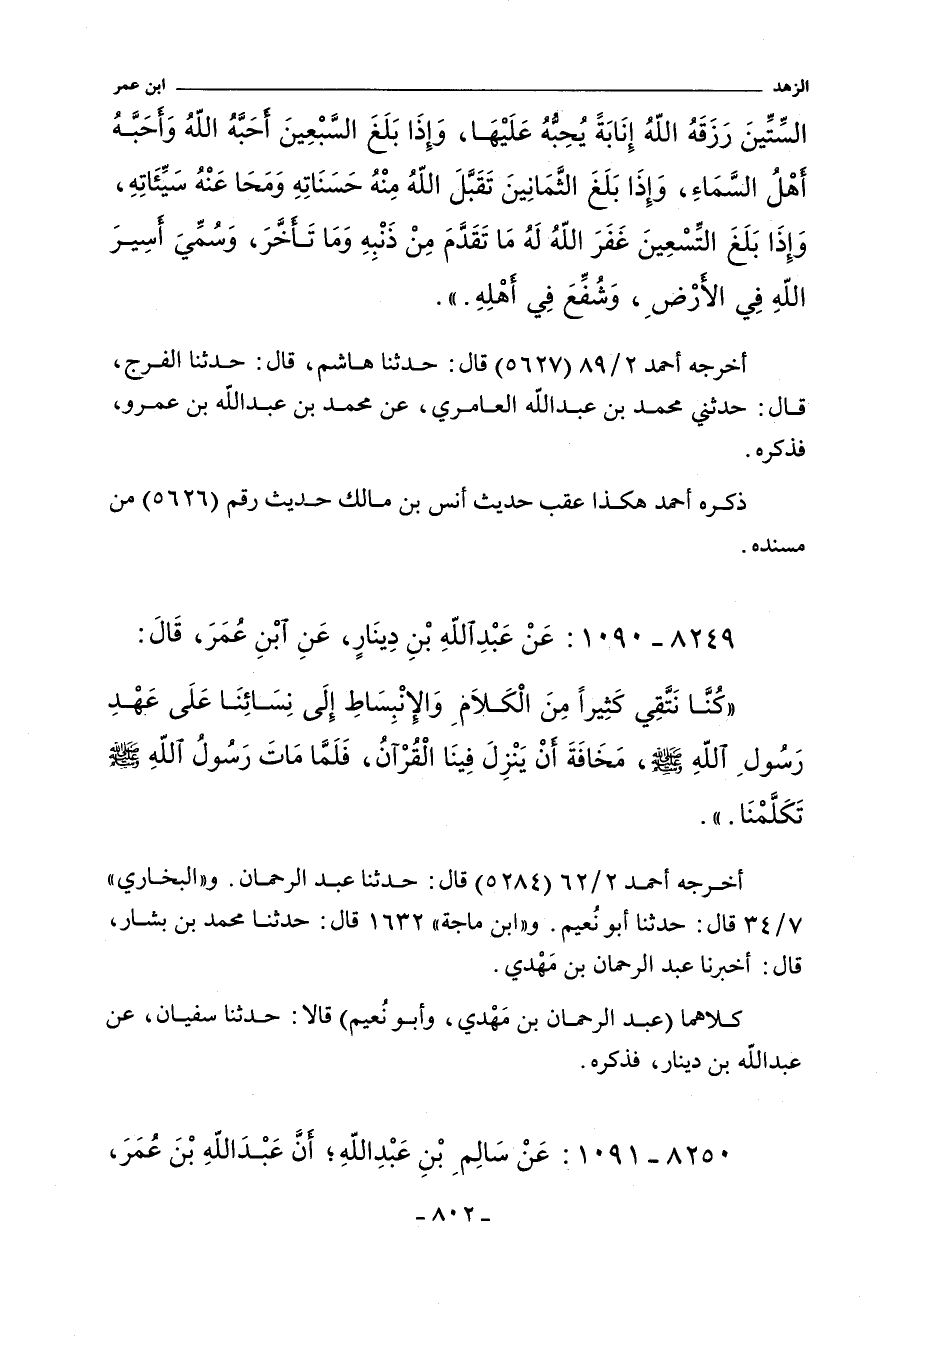 الزهد ابن عمر
السِّتِّينَ رَزَقَهُ اللّهُ إِنَابَةً يُحِبُّهُ عَلَيْهَا، وَإِذَا بَلَغَ السَّبْعِينَ أَحَبَّهُ اللّهُ وَأَحَبَّهُ
أَهْلُ السَّمَاءِ، وَإِذَا بَلَغَ الثَّمَانِينَ تَقَبَّلَ اللّهُ مِنْهُ حَسَنَاتِهِ وَمَحَا عَنْهُ سَيِّئَاتِهِ،
وَإِذَا بَلَغَ التِّسْعِينَ غَفَرَ اللّهُ لَهُ مَا تَقَدَّمَ مِنْ ذَنْبِهِ وَمَا تَأَخَّرَ، وَسُمِّيَ أَسِيرَ
اللّهِ فِي الأَرْضِ، وَشُفِّعَ فِي أَهْلِهِ.».
أخرجه أحمد ٨٩/٢ (٥٦٢٧) قال: حدثنا هاشم، قال: حدثنا الفرج،
قال: حدثني محمد بن عبدالله العامري، عن محمد بن عبدالله بن عمرو،
فذكره.
ذكره أحمد هكذا عقب حديث أنس بن مالك حديث رقم (٥٦٢٦) من
مسنده.
٨٢٤٩ - ١٠٩٠: عَنْ عَبْدِٱللّهِ بْنِ دِينَارٍ، عَنِ ٱبْنِ عُمَرَ، قَالَ:
«كُنَّا نَتَّقِي كَثِيراً مِنَ الْكَلَامِ وَالإِنْبِسَاطِ إِلَى نِسَائِنَا عَلَى عَهْدِ
رَسُولِ ٱللّهِ ﷺ، مَخَافَةَ أَنْ يَنْزِلَ فِينَا الْقُرْآنُ، فَلَمَّا مَاتَ رَسُولُ ٱللّهِ ﷺ
تَكَلَّمْنَا.».
أخرجه أحمد ٦٢/٢ (٥٢٨٤) قال: حدثنا عبد الرحمان. و«البخاري»
٣٤/٧ قال: حدثنا أبو نُعيم. و«ابن ماجة» ١٦٣٢ قال: حدثنا محمد بن بشار،
قال: أخبرنا عبد الرحمان بن مَهْدي.
كلاهما (عبد الرحمان بن مَهْدي، وأبو نُعيم) قالا: حدثنا سفيان، عن
عبدالله بن دينار، فذكره.
٨٢٥٠ - ١٠٩١: عَنْ سَالِمِ بْنِ عَبْدِاللّهِ؛ أَنَّ عَبْدَاللّهِ بْنَ عُمَرَ،
- ٨٠٢ -